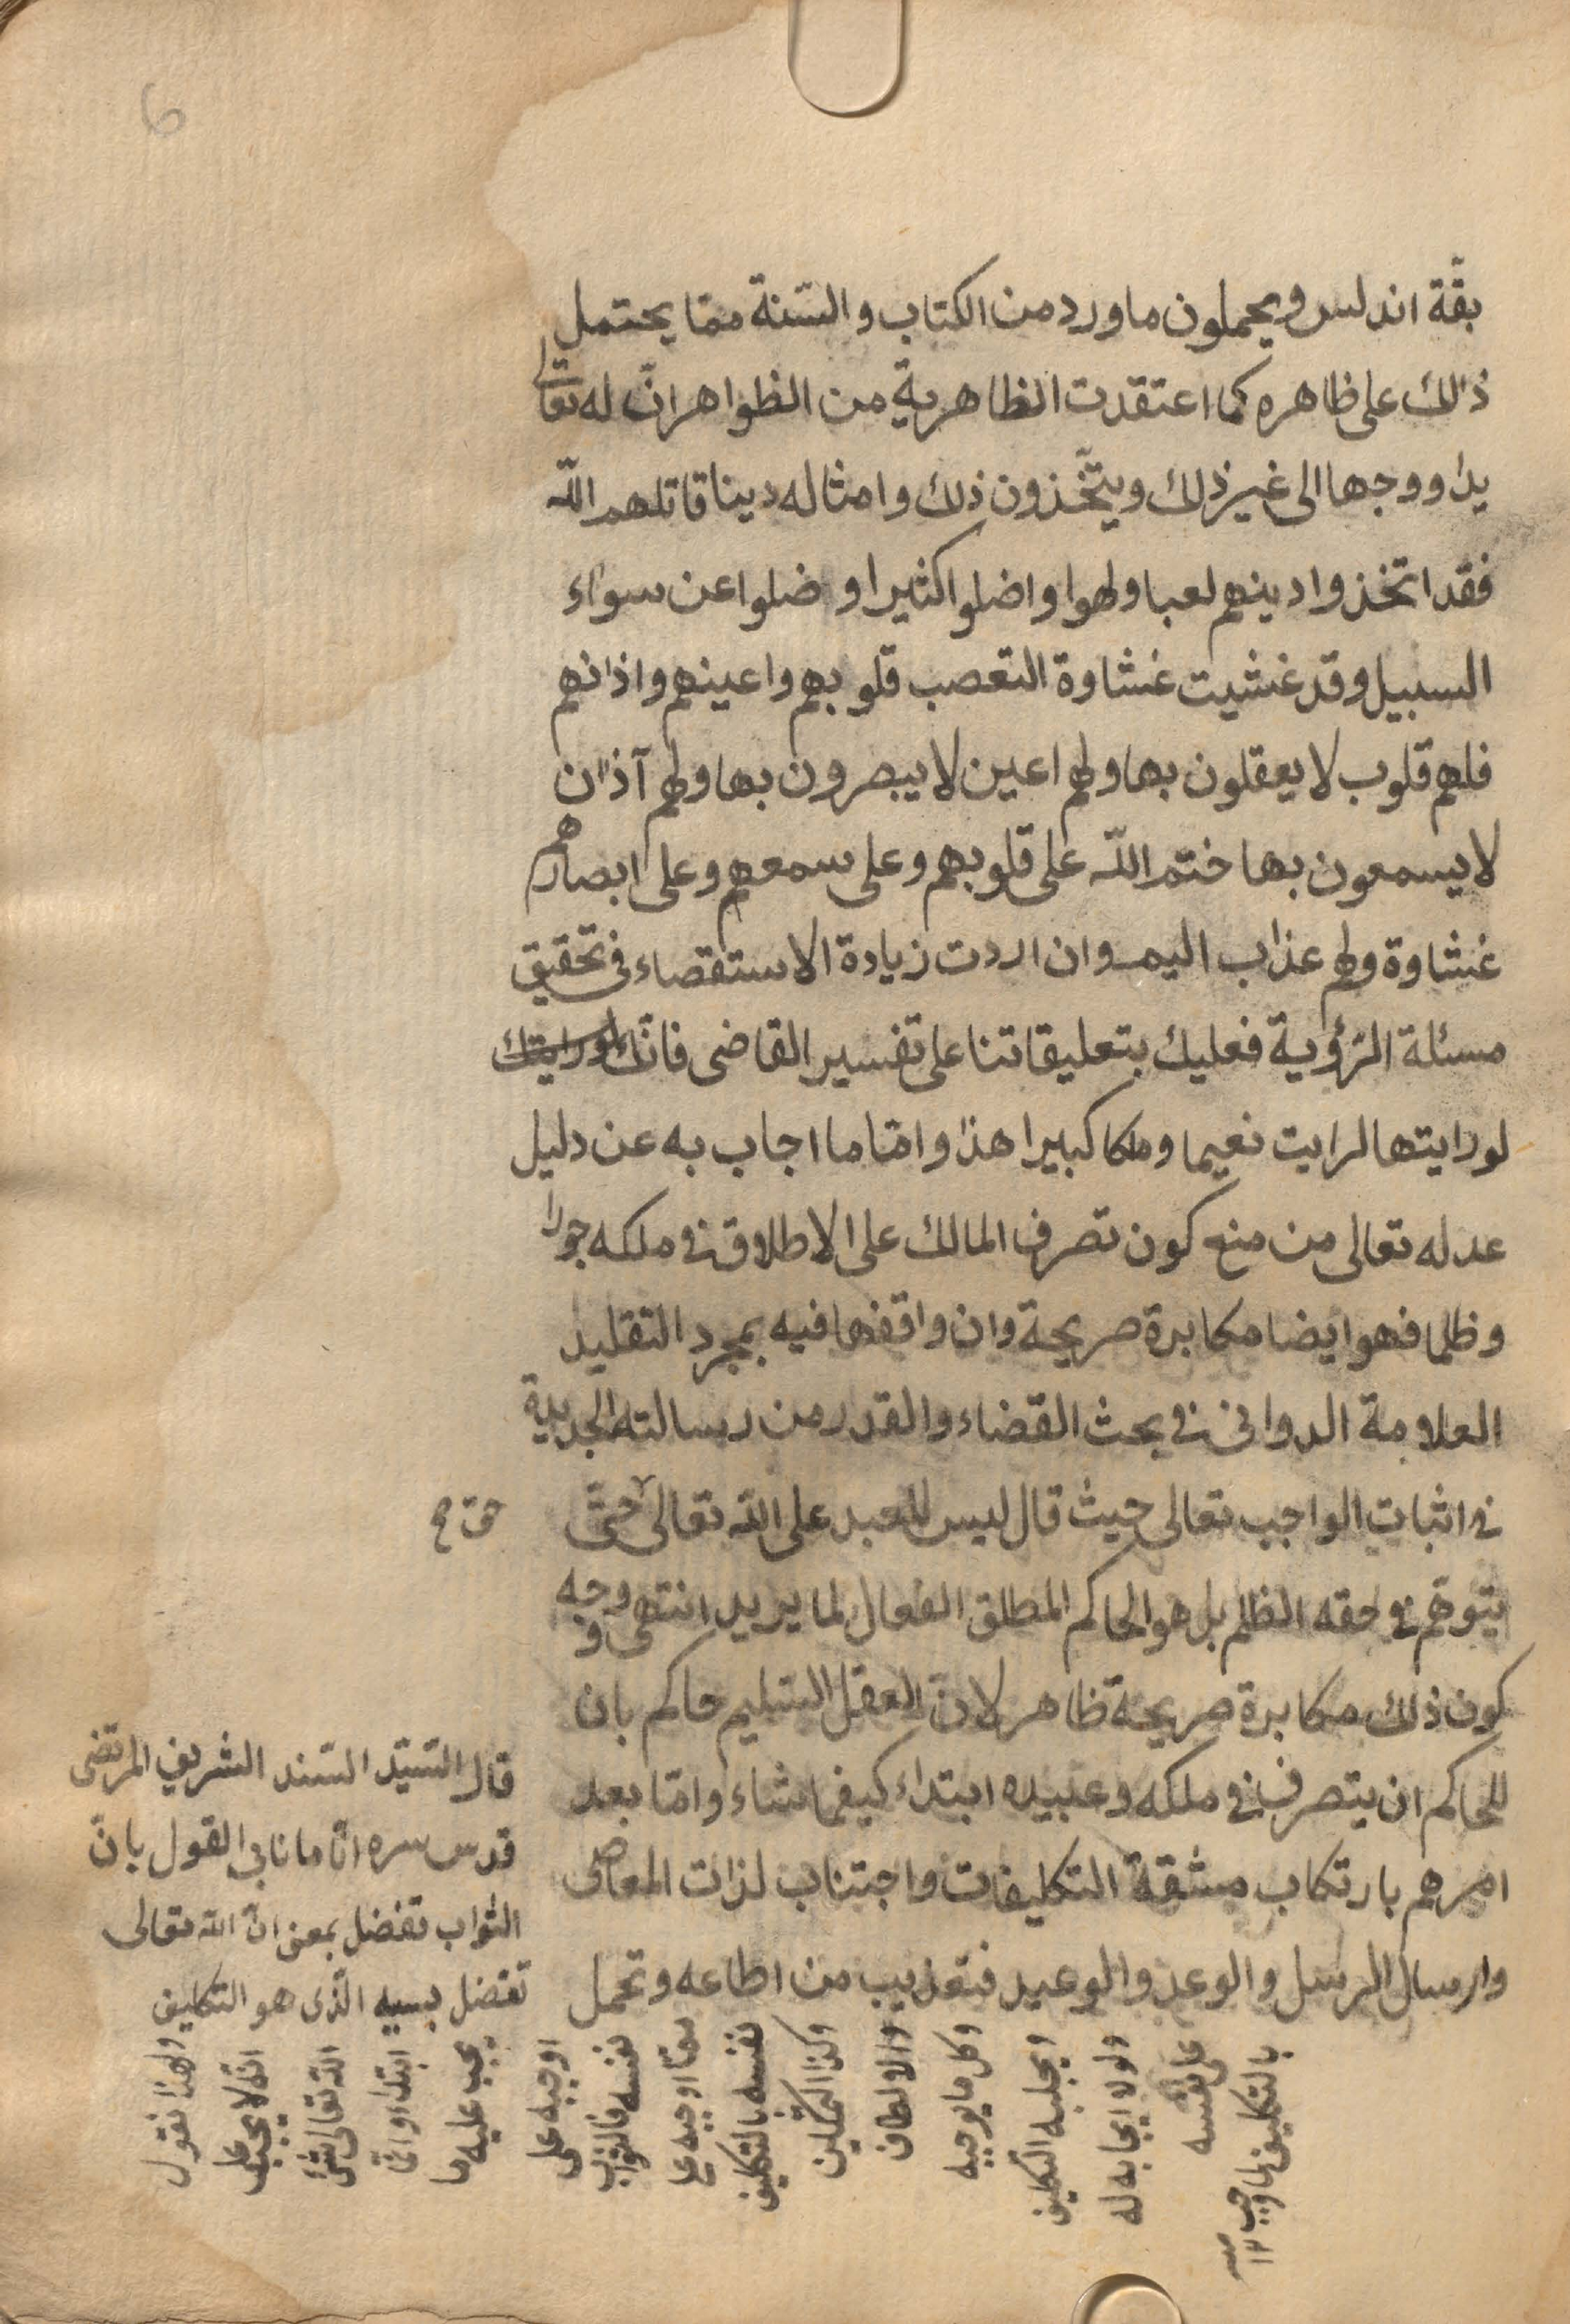 بقّة اندلس ويحملون ما ورد من الكتاب والسّنة ممّا يحتمل
ذالك على ظاهره كما اعتقدت الظاهرية من الظواهر انّ له تعالى
يدا ووجها الى غير ذلك ويتّخذون ذلك وامثاله دينا قاتلهم اللّه
فقد اتخذوا دينهم لعبا ولهوا واضلوا كثيرا وضلوا عن سواء
السبيل وقد غشيت غشاوة التعصب قلوبهم واعينهم واذانهم
فلهم قلوب لا يعقلون بها ولهم اعين لا يبصرون بها ولهم آذان
لا يسمعون بها ختم اللّه على قلوبهم وعلى سمعهم وعلى ابصارهم
غشاوة ولهم عذاب اليم وان اردت زيادة الاستقصاء فى تحقيق
مسئلة الرّؤية فعليك بتعليقاتنا على تفسير القاضى فانّك
لو رايتها لرايت نعيما وملكا كبيرا هذا وامّا ما اجاب به عن دليل
عدله تعالى من منع كون تصرف المالك على الاطلاق فى ملكه جورا
وظلما فهو ايضا مكابرة صريحة وان واقفها فيه بمجرد التقليد
العلامة الدوانى فى بحث القضاء والقدر من رسالته الجديدة
فى اثبات الواجب تعالى حيث قال ليس للعبد على اللّه تعالى حتّى
حق
يتوهّم فى حقه الظلم بل هو الحاكم المطلق الفعال لما يريد انتهى ووجه
كون ذلك مكابرة صريحة ظاهر لانّ العقل السّليم حاكم بان
للحاكم ان يتصرف فى ملكه وعبيده ابتداء كيفما شاء وامّا بعد
امرهم بارتكاب مشقة التكليفات واجتناب لذات المعاصى
وارسال الرسل والوعد والوعيد فتعذيب من اطاعه وتحمل
قال السّيّد السّند الشريف المرتضى
قدس سره انّا ما نابى القول بانّ
الثواب تفضل بمعنى انّ اللّه تعالى
تفضل بسببه الّذى هو التكليف
ولهذا نقول
انّه لا يجب على
اللّه تعالى شئ
ابتداء وانّما
يجب عليه ما
اوجبه على
نفسه فالثواب
ممّا اوجبه على
نفسه بالتكليف
وكذا التمكين
والالطاف
وكل ما يوجبه
ويجلبه التكليف
ولولا ايجابه له
على نفسه
بالتكليف لما وجب
١٢